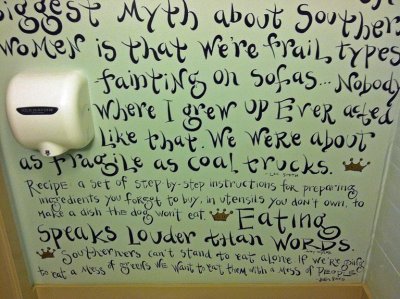 Biggest Myth about Southern
women is that we're frail types
fainting on sofas... Nobody
where I grew up Ever acted
like that. We were about
as fragile as coal trucks.
Lee Smith
Recipe: a set of step-by-step instructions for preparing
ingredients you forgot to buy, in utensils you don't own, to
make a dish the dog won't eat.
Eating
speaks louder than words.
Southerners can't stand to eat alone. If we're going
to eat a mess of greens we want to eat them with a mess of people.